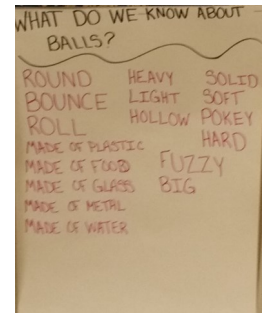 WHAT DO WE KNOW ABOUT
BALLS?
ROUND
BOUNCE
ROLL
MADE OF PLASTIC
MADE OF FOOD
MADE OF GLASS
MADE OF METAL
MADE OF WATER
HEAVY
LIGHT
HOLLOW
FUZZY
BIG
SOLID
SOFT
POKEY
HARD